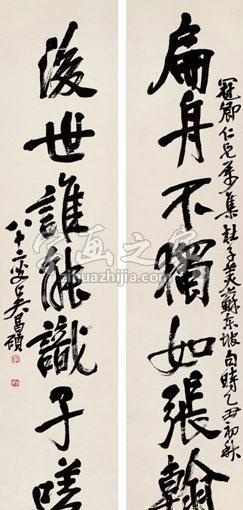 冠卿仁兄屬集杜子美蘇東坡句時乙丑初秋
扁舟不獨如張翰
後世誰能識子嗟
八十二叟吴昌碩
字画之家
zihuazhijia.com